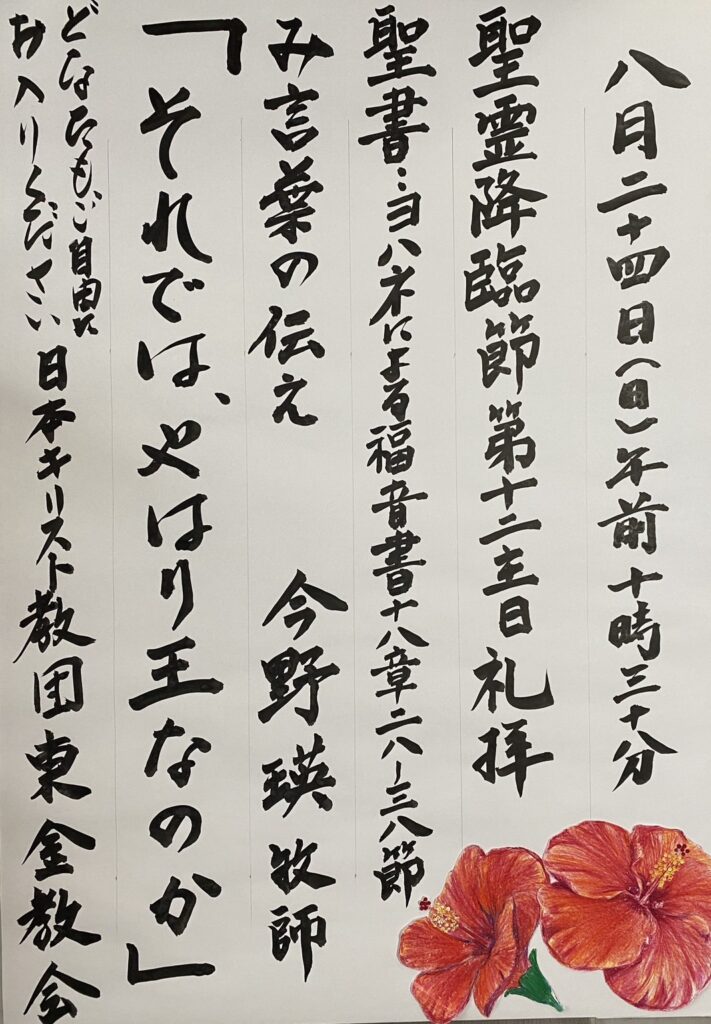 八月二十四日(日)午前十時三十分
聖霊降臨節第十二主日礼拝
聖書:ヨハネによる福音書十八章二八-三八節
み言葉の伝え 今野瑛牧師
「それでは、やはり王なのか」
どなたでも、ご自由に
お入りください
日本キリスト教団東金教会